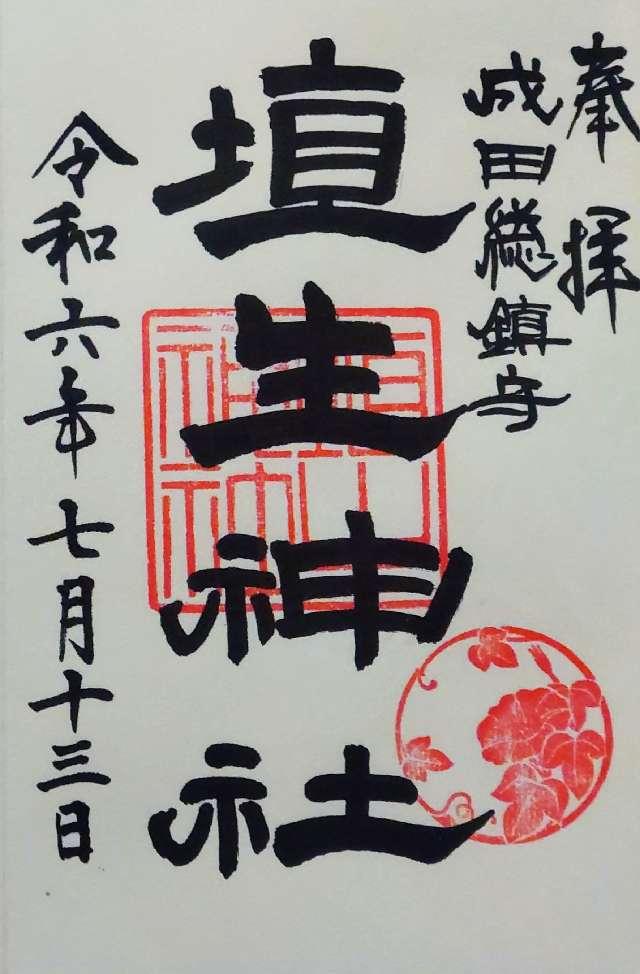 奉拝
成田総鎮守
埴生神社
令和六年七月十三日